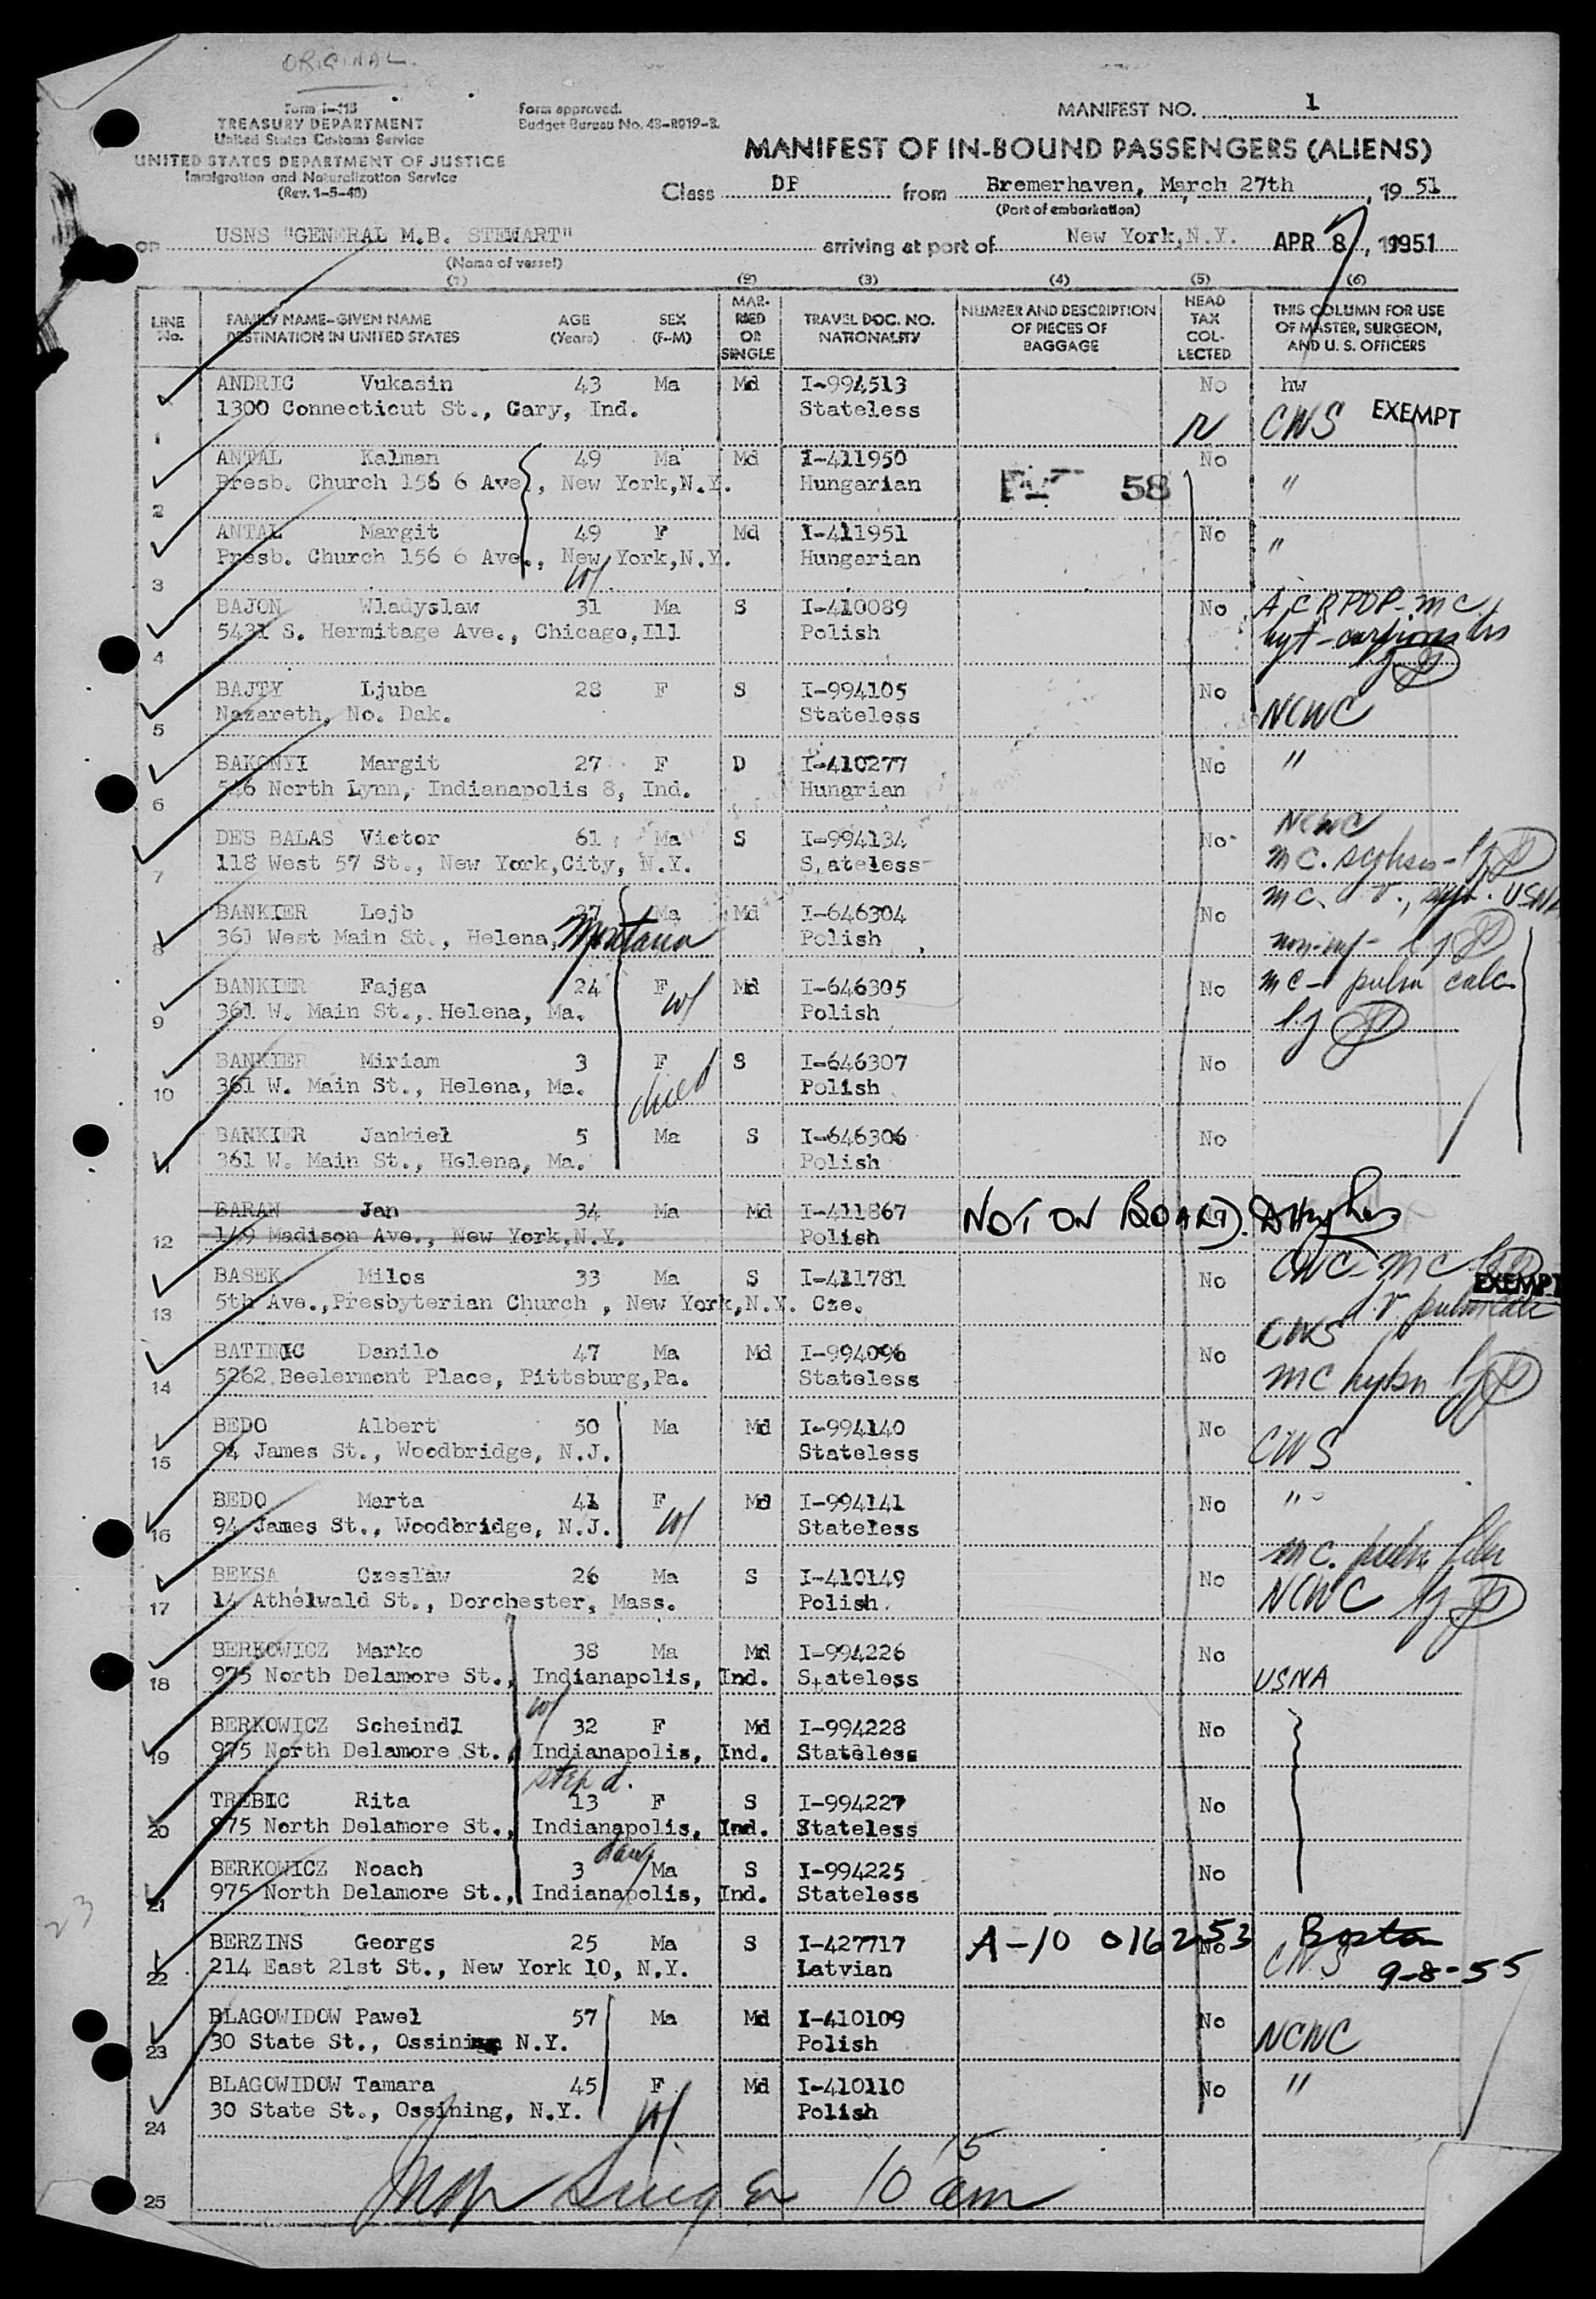 ORIGINAL.
Form I-418
TREASURY DEPARTMENT
United States Customs Service
UNITED STATES DEPARTMENT OF JUSTICE
Immigration and Naturalization Service
(Rev. 1-5-48)
Form approved.
Budget Bureau No. 43-R019-3.
MANIFEST NO. 1
MANIFEST OF IN-BOUND PASSENGERS (ALIENS)
Class DP from Bremerhaven, March 27th, 19 51
(Port of embarkation)
on USNS "GENERAL M.B. STEWART" arriving at port of New York, N.Y. APR 8, 1951
(Name of vessel)
(1) (2) (3) (4) (5) (6)
LINE No. FAMILY NAME-GIVEN NAME DESTINATION IN UNITED STATES AGE (Years) SEX (F-M) MARRIED OR SINGLE TRAVEL DOC. NO. NATIONALITY NUMBER AND DESCRIPTION OF PIECES OF BAGGAGE HEAD TAX COLLECTED THIS COLUMN FOR USE OF MASTER, SURGEON, AND U. S. OFFICERS
ANDRIC Vukasin 43 Ma Md I-994513 No hw
1300 Connecticut St., Gary, Ind. Stateless CWS EXEMPT
1
ANTAL Kalman 49 Ma Md I-411950 No
Presb. Church 156 6 Ave., New York,N.Y. Hungarian 58 "
2
ANTAL Margit 49 F Md I-411951 No
Presb. Church 156 6 Ave., New York,N.Y. Hungarian "
3 w/
BAJON Wladyslaw 31 Ma S I-410089 No
5431 S. Hermitage Ave., Chicago,Ill Polish
4
BAJTY Ljuba 28 F S I-994105 No
Nazareth, No. Dak. Stateless NCWC
5
BAKONYI Margit 27 F D I-410277 No "
546 North Lynn, Indianapolis 8, Ind. Hungrian
6
DES BALAS Victor 61 Ma S I-994134 No NCWC
118 West 57 St., New York,City, N.Y. S,ateless
7
BANKIER Lejb 27 Ma Md I-646304 No USNA
361 West Main St., Helena, Montana Polish
8
BANKIER Fajga 24 F Md I-646305 No mc- pulm calc
361 W. Main St., Helena, Ma. w/ Polish
9
BANKIER Miriam 3 F S I-646307 No
361 W. Main St., Helena, Ma. Polish
10
BANKIER Jankiel 5 Ma S I-646306 No
361 W. Main St., Helena, Ma. Polish
11
BARAN Jan 34 Ma Md I-411867 NOT ON BOARD.
149 Madison Ave., New York,N.Y. Polish
12
BASEK Milos 33 Ma S I-411781 No EXEMPT
5th Ave.,Presbyterian Church , New York,N.Y. Cze.
13
BATINIC Danilo 47 Ma Md I-994096 No CWS
5262 Beelermont Place, Pittsburg,Pa. Stateless
14
BEDO Albert 50 Ma Md I-994140 No
94 James St., Woodbridge, N.J. Stateless CWS
15
BEDO Marta 41 F Md I-994141 No "
94 James St., Woodbridge, N.J. w/ Stateless
16
BEKSA Czeslaw 26 Ma S I-410149 No
14 Athelwald St., Dorchester, Mass. Polish. NCWC
17
BERKOWICZ Marko 38 Ma Md I-994226 No
975 North Delamore St., Indianapolis, Ind. S,ateless USNA
18 w/
BERKOWICZ Scheindl 32 F Md I-994228 No
975 North Delamore St., Indianapolis, Ind. Stateless
19 step d.
TREBIC Rita 13 F S I-994227 No
975 North Delamore St., Indianapolis, Ind. Stateless
20
BERKOWICZ Noach 3 Ma S I-994225 No
975 North Delamore St., Indianapolis, Ind. Stateless
21
23
BERZINS Georgs 25 Ma S I-427717 A-10 016253 No Boston
214 East 21st St., New York 10, N.Y. Latvian CWS 9-8-55
22
BLAGOWIDOW Pawel 57 Ma Md I-410109 No
30 State St., Ossining N.Y. Polish NCWC
23
BLAGOWIDOW Tamara 45 F Md I-410110 No "
30 State St., Ossining, N.Y. w/ Polish
24
10 15 am
25